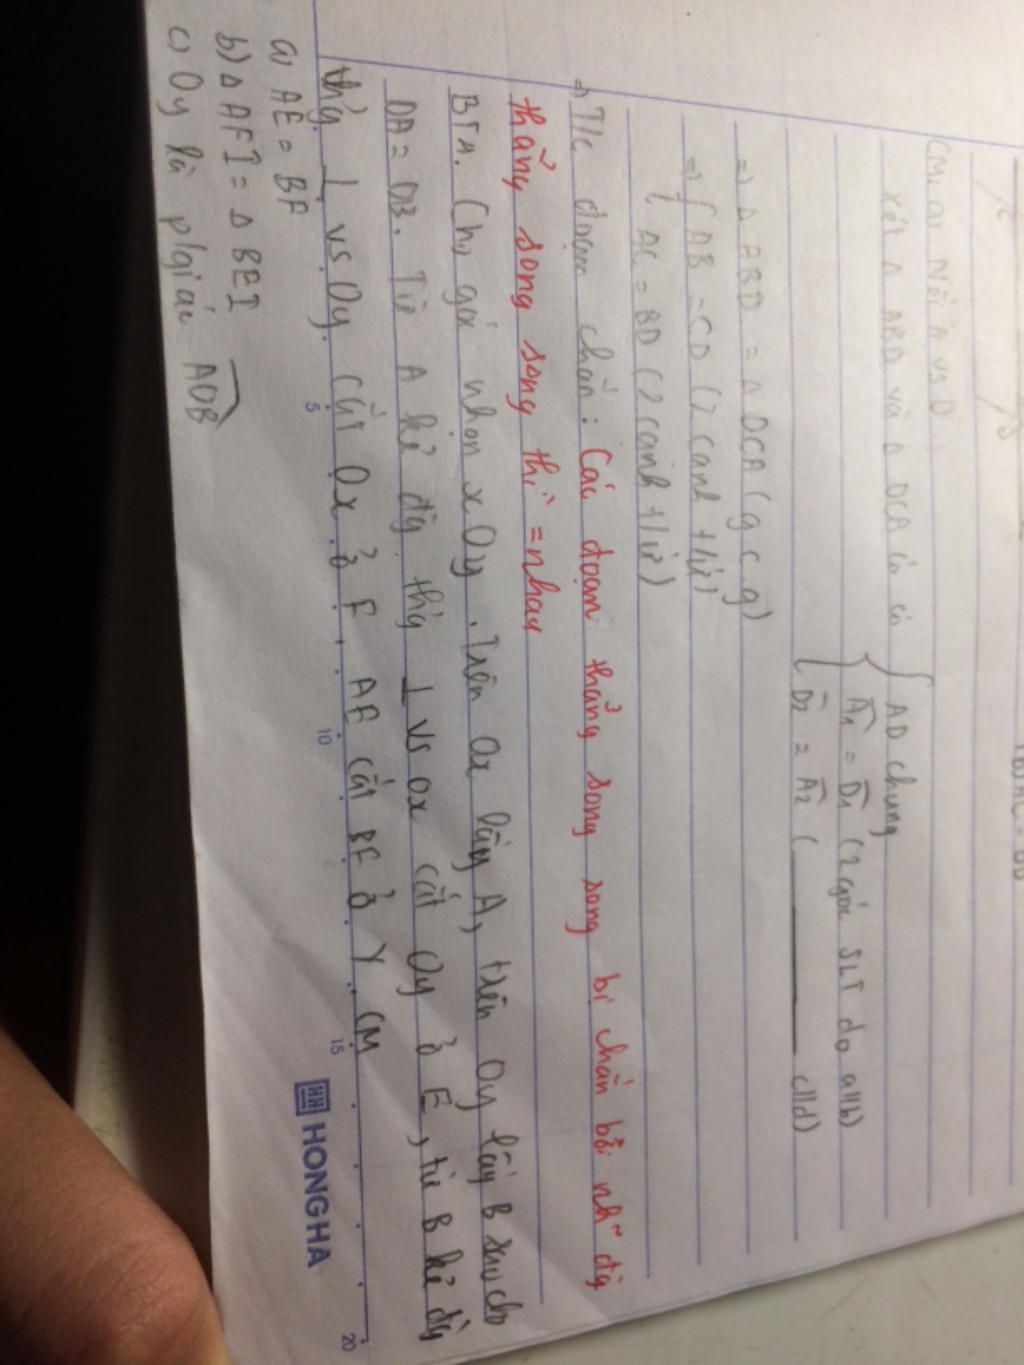 CM: a) Nối A vs D
xét Δ ABD và Δ DCA có có { AD chung
A1 = D1 (2 góc SLT do a//b)
D2 = A2 ( ——— c//d)
=> Δ ABD = Δ DCA (g c g)
=> { AB = CD (2 cạnh t/ứ)
AC = BD (2 cạnh t/ứ)
=> T/c đoạn chắn: Các đoạn thẳng song song bị chắn bởi nh~ đg
thẳng song song thì = nhau
BTA. Cho góc nhọn xOy. Trên Ox lấy A, trên Oy lấy B sao cho
OA = OB. Từ A kẻ đg thg ⊥ vs Ox cắt Oy ở E, từ B kẻ đg
thg ⊥ vs Oy cắt Ox ở F. AE cắt BF ở Y. CM
a) AE = BF
b) Δ AFI = Δ BEI
c) Oy là p/giác AOB
5 10 15 20
HH HONG HA